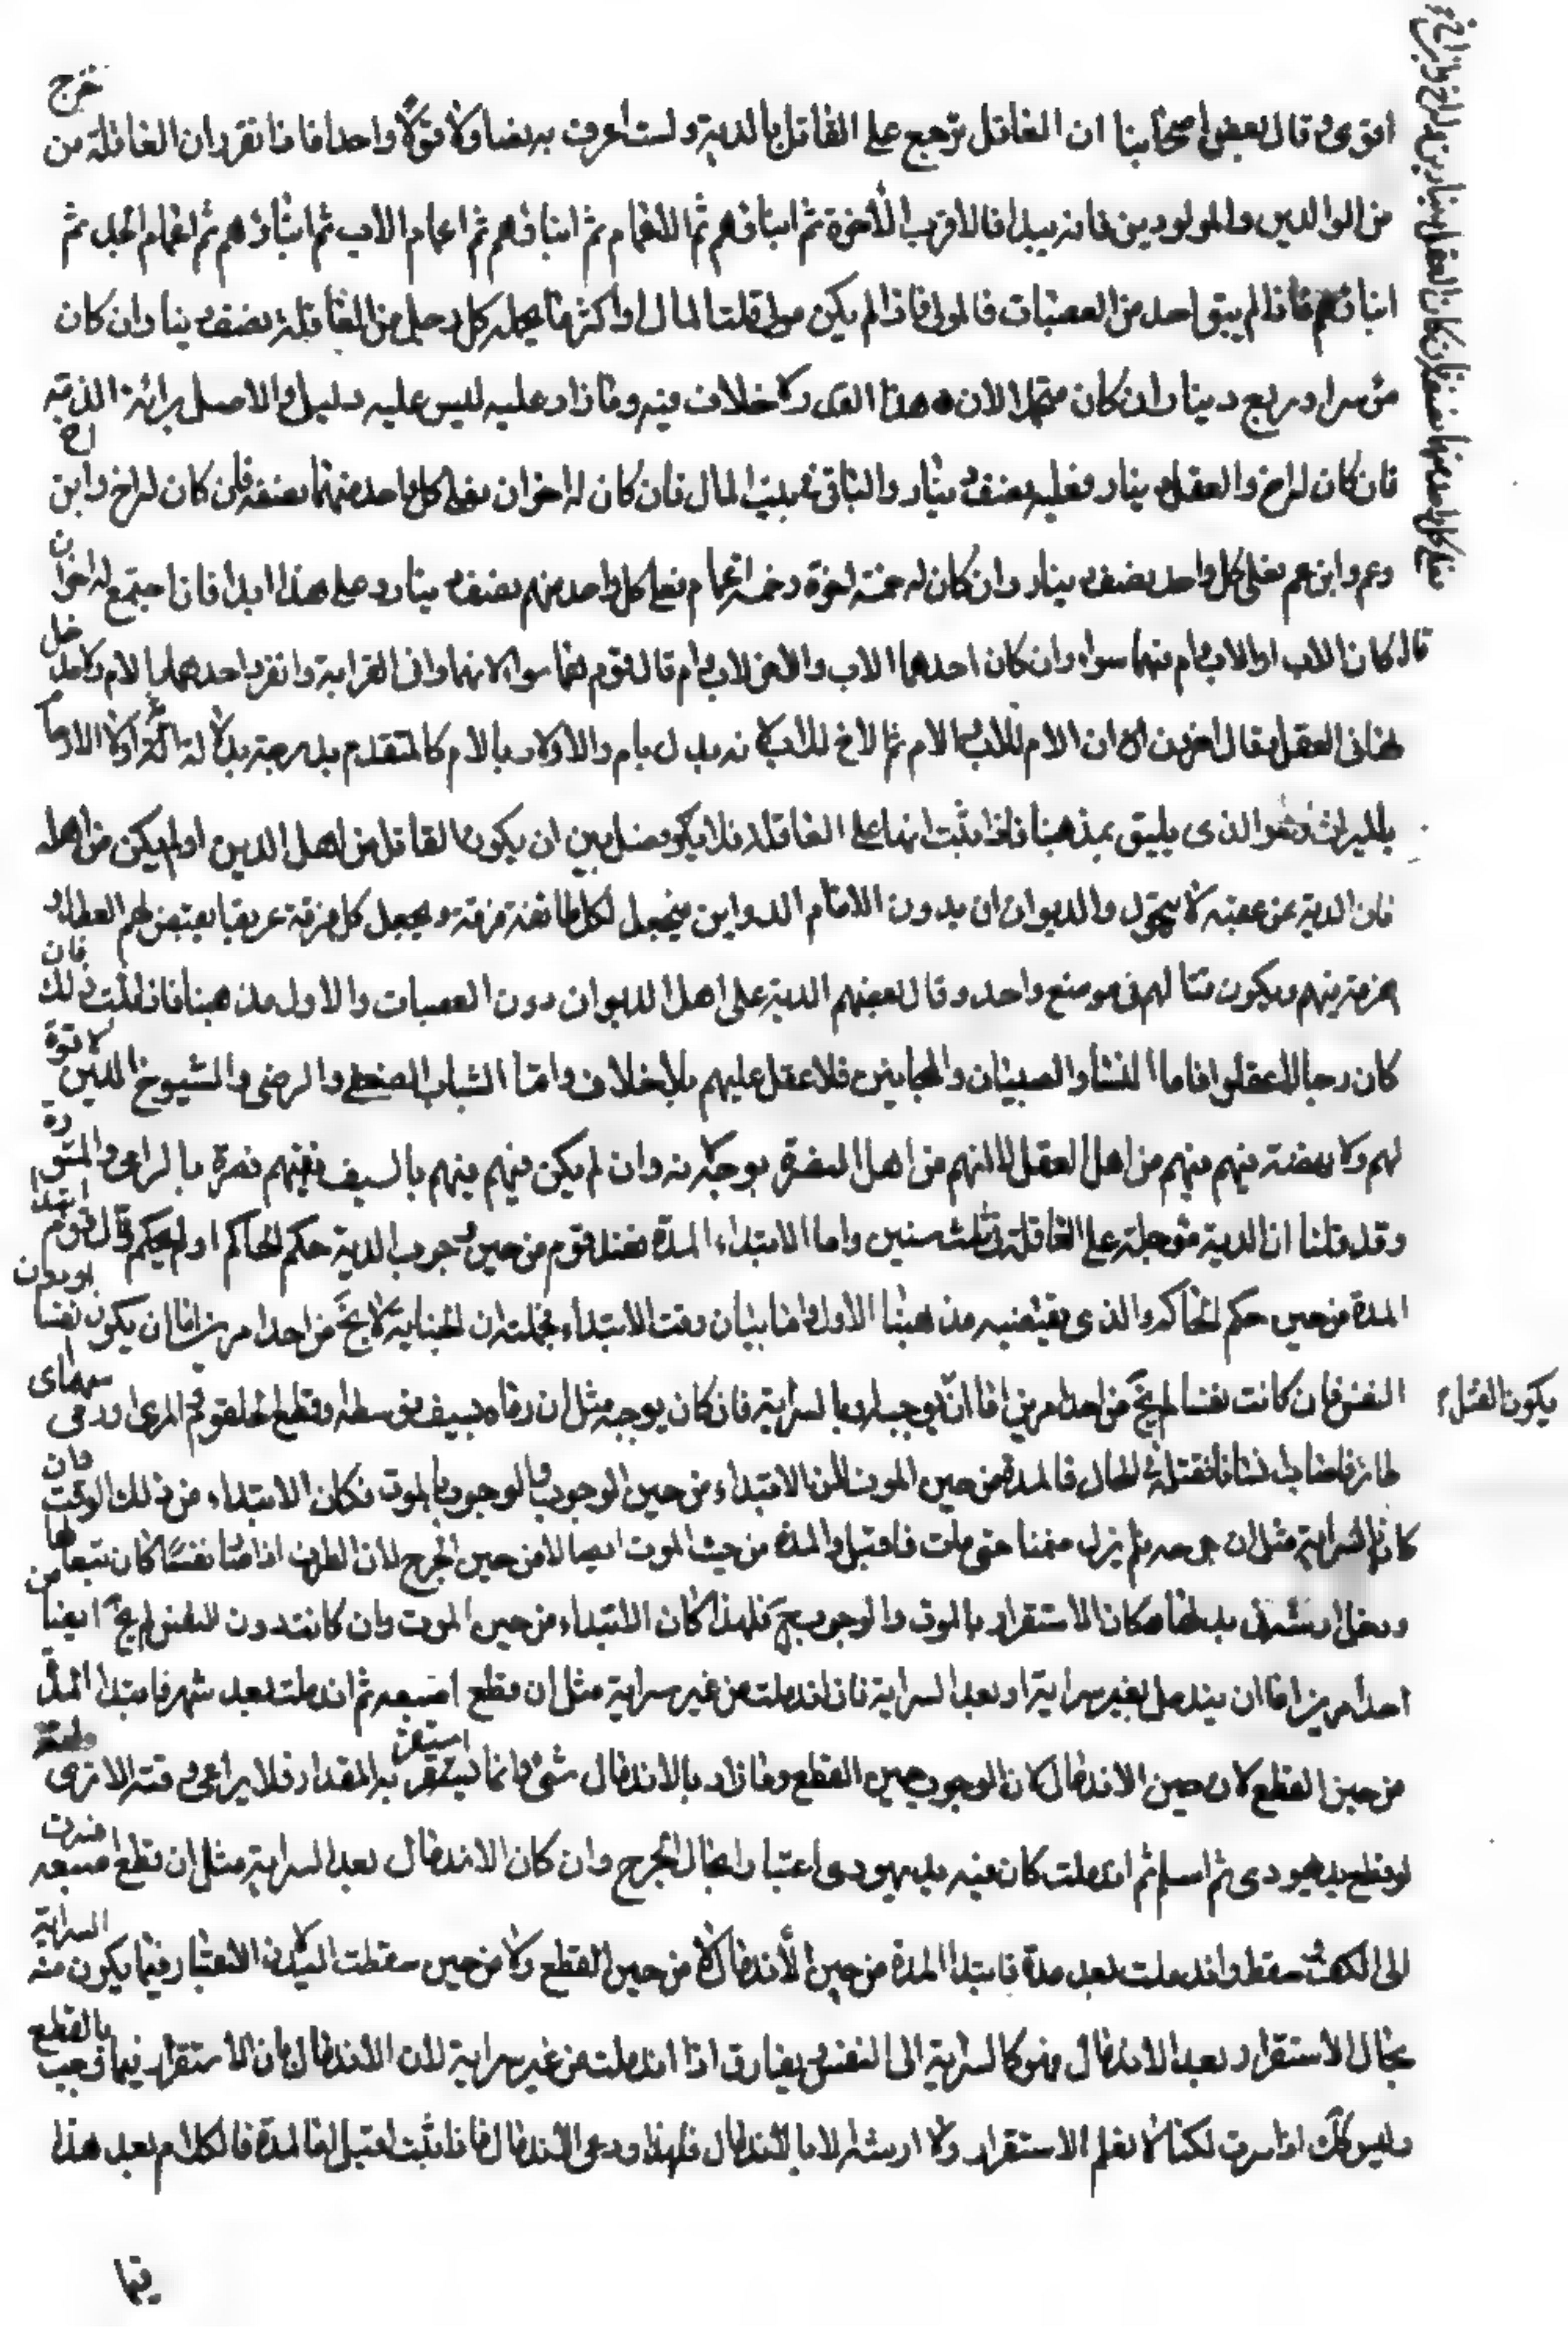 اقوى وقال بعض اصحابنا ان العاقل ترجع على القاتل بالدية ولست اعرف به نصا ولا قولا واحدا فاذا تقرر ان العاقلة من خرج
من الوالدين والمولودين فانه يبدا فالاقرب الاخوة ثم ابناؤهم ثم الاعمام ثم ابناؤهم ثم اعمام الاب ثم ابناؤهم ثم اعمام الجد ثم
ابناؤهم فاذا لم يبق احد من العصبات فالمولى فاذا لم يكن مولى قلت المال او اكثر ما يحمله كل رجل من العاقلة نصف دينا وان كان
موسرا وربع دينار ان كان متجملا لان هذا القدر لا خلاف فيه وما زاد عليه ليس عليه دليل والاصل برائة الذمة
فان كان له اخ والعقل دينار فعليه نصف دينار والباقى فى بيت المال فان كان له اخوان فعلى كل واحد منهما نصفه فان كان له اخ وابن اخ
وعم وابن عم فعلى كل واحد نصف دينار وان كان له خمسة اخوة وخمسة اعمام فعلى كل واحد منهم نصف دينار وعلى هذا ابدا فان اجتمع له اخوان
قال كان الاب او الاب وام فهما سواء وان كان احدهما الاب والاخر لاب وام قال قوم هما سواء لانهما فى القرابة وانفرد احدهما بالام ولا مدخل
لها فى العقل وقال اخرون ان الام للاب الام ثم الاخ للاب لانه يدل بام والاولاد بالام كالمتقدم بدرجة
بالميراث وهو الذى يليق بمذهبنا فاذا ثبت انها على العاقلة فلا فصل بين ان يكون القاتل من اهل الدين او لم يكن من اهله
فان الدية عن عصبته لا يتحول والديوان ان يدون الامام الدواوين فيجعل لكل طائفة فرقة ويجعل كل فرقة عريفا يقبض لهم العطاء و
يفرقه فيهم ويكون قتالهم فى موضع واحد وقال بعضهم الدية على اهل الديوان دون العصبات والاول مذهبنا فاذا ثبت ذلك فان
كان رجالا عقلوا فاما النساء والصبيان والمجانين فلا عقل عليهم بلا خلاف واما الشباب الضعفى والرضى والشيوخ الذين لا قوة
لهم ولا نهضة فيهم فهم من اهل العقل لانهم من اهل النصرة بوجه لانه وان لم يكن فيهم منهم بالسيف ففيهم نصرة بالراى والمشورة
وقد قلنا ان الدية مؤجلة على العاقلة ثلث سنين واما الابتداء المدة فعند قوم من حين وجوب الدية حكم الحاكم او لم يحكم وقال قوم ابتداء
المدة من حين حكم الحاكم والذى يقتضيه مذهبنا الاول فاما بيان وقت الابتداء فجملته ان الجناية لا يخ من احد امرين اما ان يكون نفسا او دون
النفس فان كانت نفسا لم يخ من احد امرين اما ان يوجبه او بالسراية فان كان بوجبه مثل ان رماه بسيف فوسطه او قطع الحلقوم والمرى او رمى سهما الى
طائر فاصاب انسانا فقتله فى الحال فالمدة من حين الموت لان الابتداء من حين الوجوب والوجوب بالموت فكان الابتداء من ذلك الوقت فان
كان السراية مثل ان جرحه فلم يزل ضمنا حتى مات فاقبل والمدة من حين الموت ايضا لا من حين الجرح لان الطرف اذا صار نفسا كان تبعا لها
ودخل ارشه فى بدلها فكان الاستقرار بالموت والوجوب ح فلهذا كان الابتداء من حين الموت وان كانت دون النفس لم يخ ايضا من
احد امرين اما ان يندمل بغير سراية او بعد السراية فان اندملت من غير سراية مثل ان قطع اصبعه ثم اندملت بعد شهر فابتداء المدة
من حين القطع لا من حين الاندمال لان الوجوب حين القطع وما زاد بالاندمال شئ وانما يستقر به المقدار فلا يراعى وقته الا ترى
لو قطع يد يهودى ثم اسلم ثم اندملت كان فيه يد يهودى اعتبارا بحال الجرح وان كان الاندمال بعد السراية مثل ان قطع اصبعه فسرت
الى الكف سقطت واندملت بعد مدة فابتدا المدة من حين الاندمال لا من حين القطع ولا من حين سقطت اليد لان الاعتبار فيما يكون منه السراية
بحال الاستقرار وبعد الاندمال فهو كالسراية الى النفس ويفارق اذا اندملت من غير سراية لان الاندمال بان الاستقرار فيما وجب بالقطع
وليس كك اذا سرت لكنا لا نعلم الاستقرار ولا ارشه الا بالاندمال فلهذا روعى الاندمال فاذا ثبت لها المدة فالكلام بعد هذا
يكون القتل
فيما